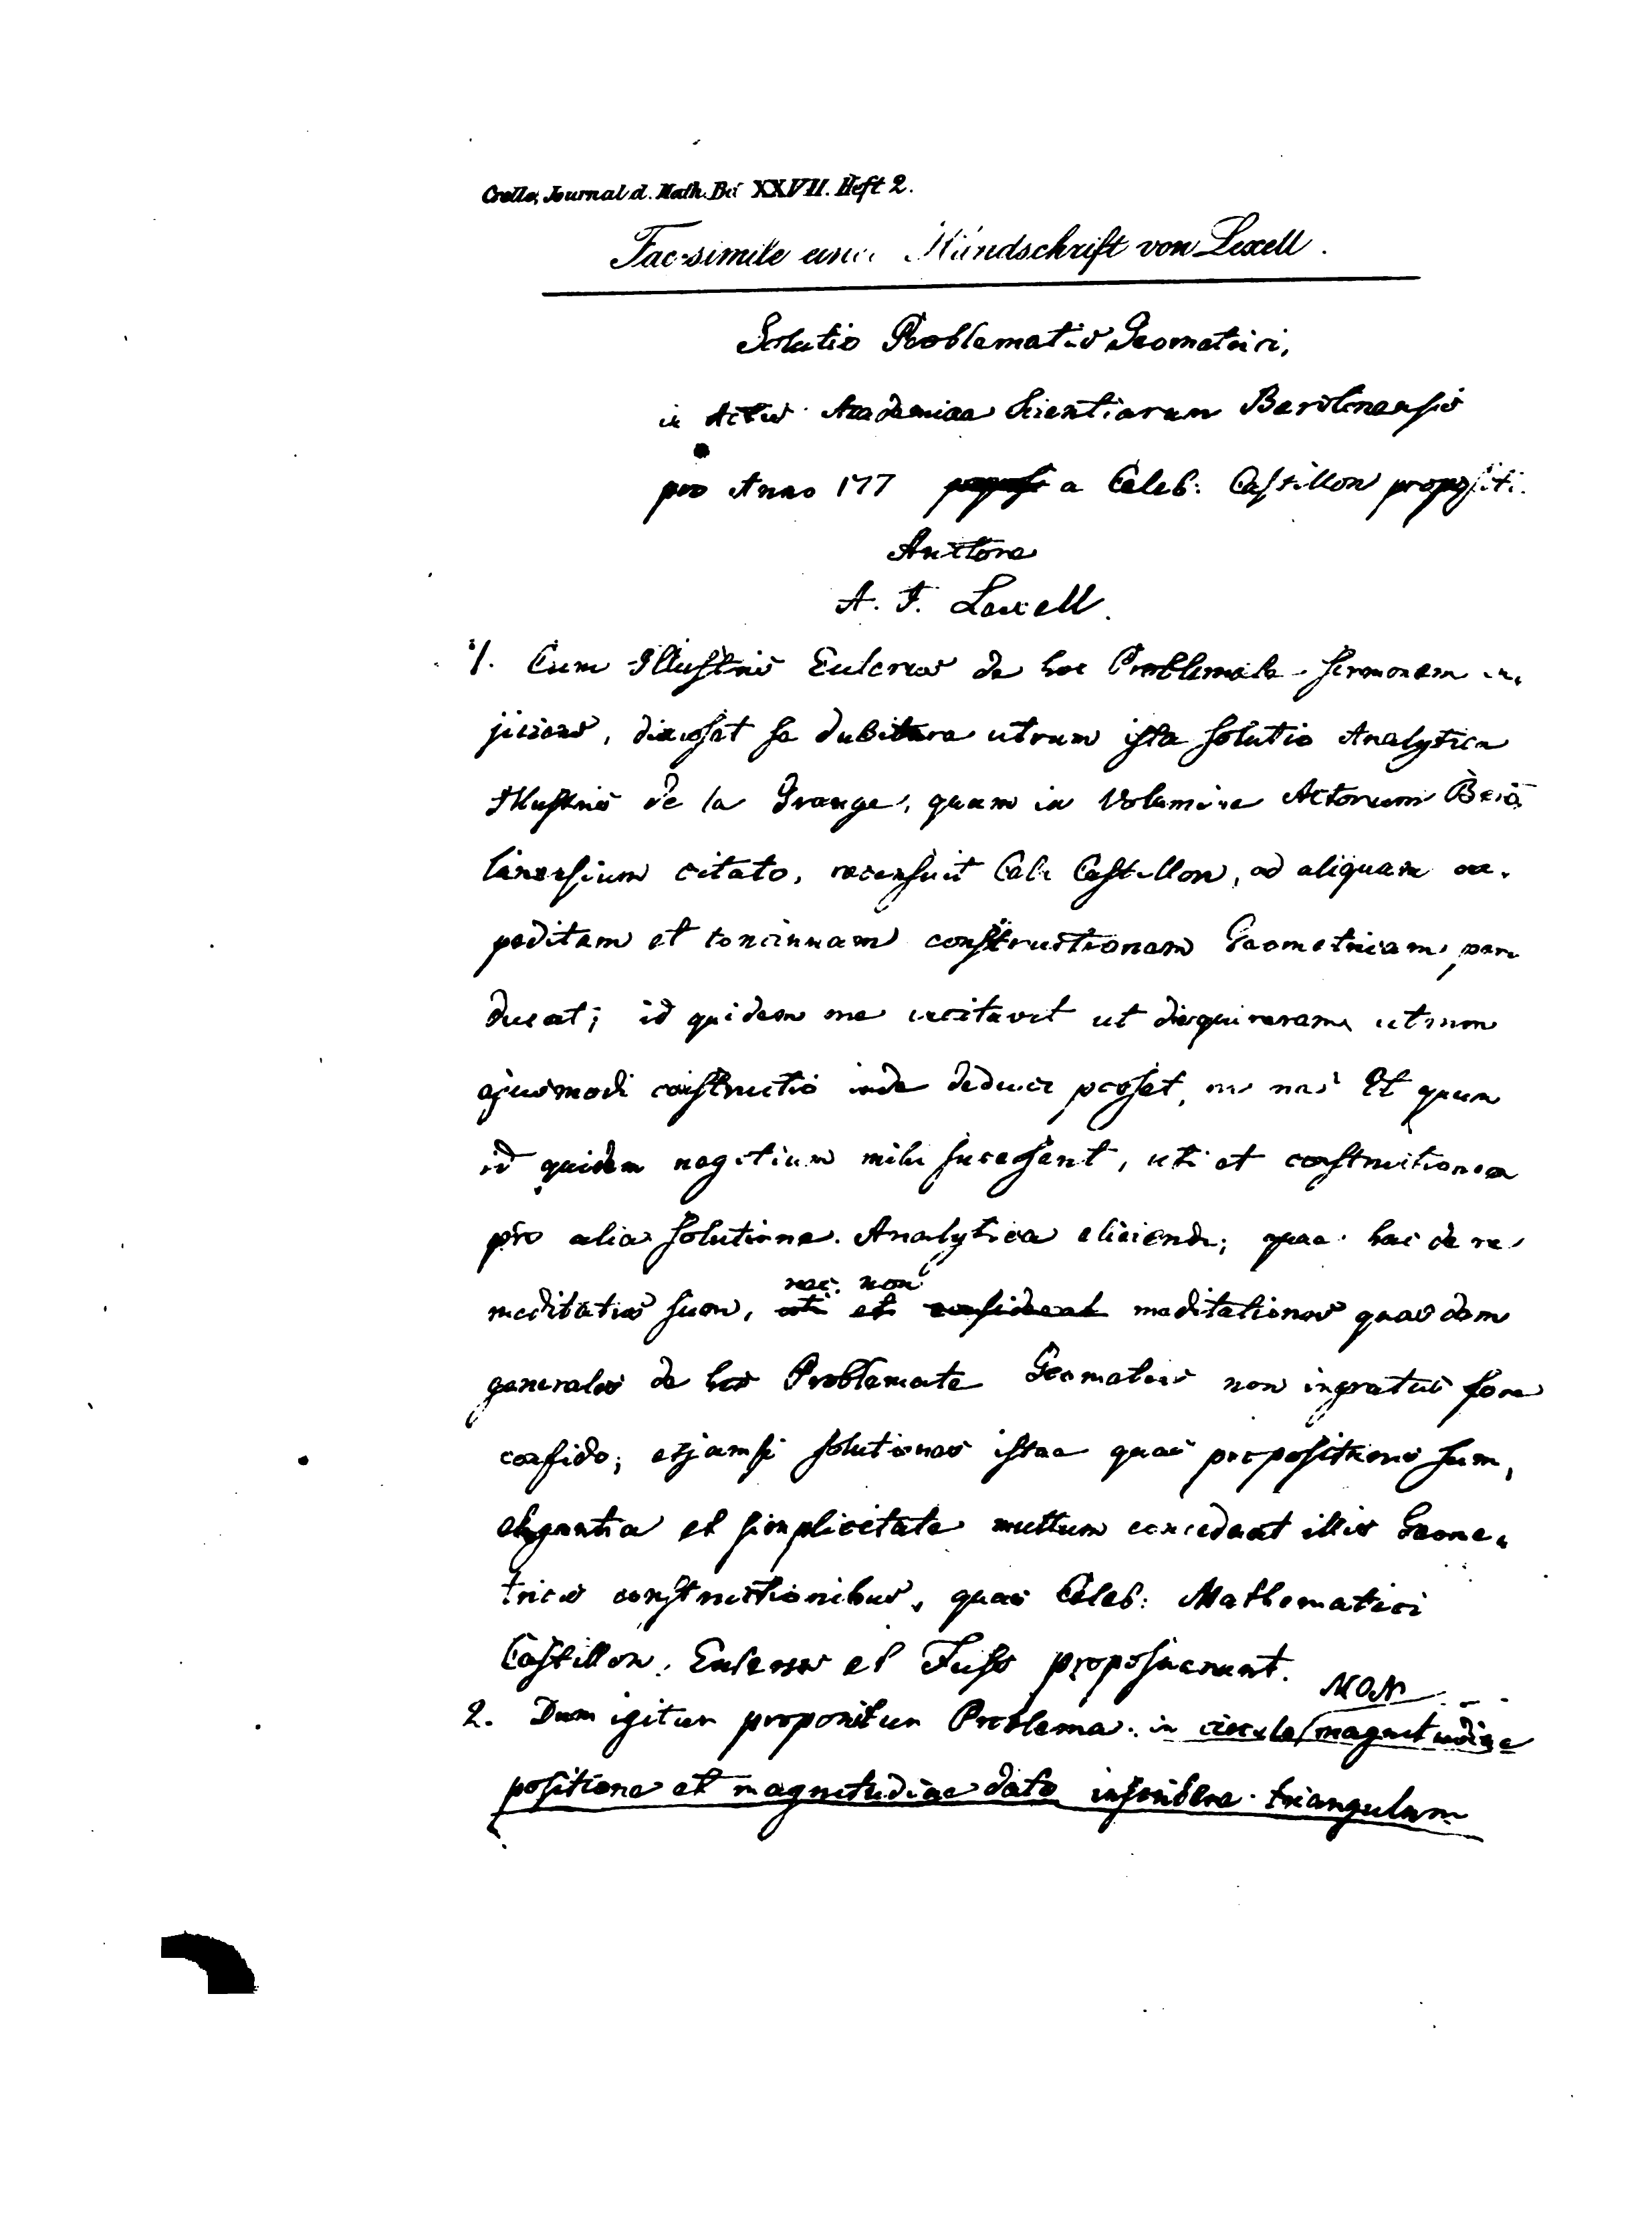 Crelle, Journal d. Math. Bd XXVII. Heft 2.
Fac-simile einer Handschrift von Lexell.
Solutio Problematis Geometrici,
in Actis Academiae Scientiarum Berolinensis
pro Anno 177 a Celeb: Castillon propositi.
Auctore
A. J. Lexell.
1. Cum Illustris Eulerus de hoc Problemate sermonem in
jiciens, dixisset se dubitare utrum ista solutio Analytica
Illustris de la Grange, quam in Volumine Actorum Bero
linensium citato, recensuit Cel: Castillon, ad aliquam ex-
peditam et concinnam constructionem Geometricam, per
ducat; id quidem me incitavit ut disquirerem utrum
ejusmodi constructio inde deduci posset, nec ne? Et quum
id quidem negotium mihi successerit, uti et constructionem
pro alia solutione Analytica eliciendi; quae hac de re
meditatus sum, nec non
uti et meditationes quasdam
generales de hoc Problemate Geometris non ingratas fore
confido; etjamsi solutiones istae quas propositurus sum,
elegantia et simplicitate multum concedant illis Geome-
tricis constructionibus, quas Celeb: Mathematici
Castillon, Eulerus et Fuss proposuerunt.
2. Dum igitur proponitur Problema: in circulo MON magnitudine
positione et magnitudine dato inscribere triangulum